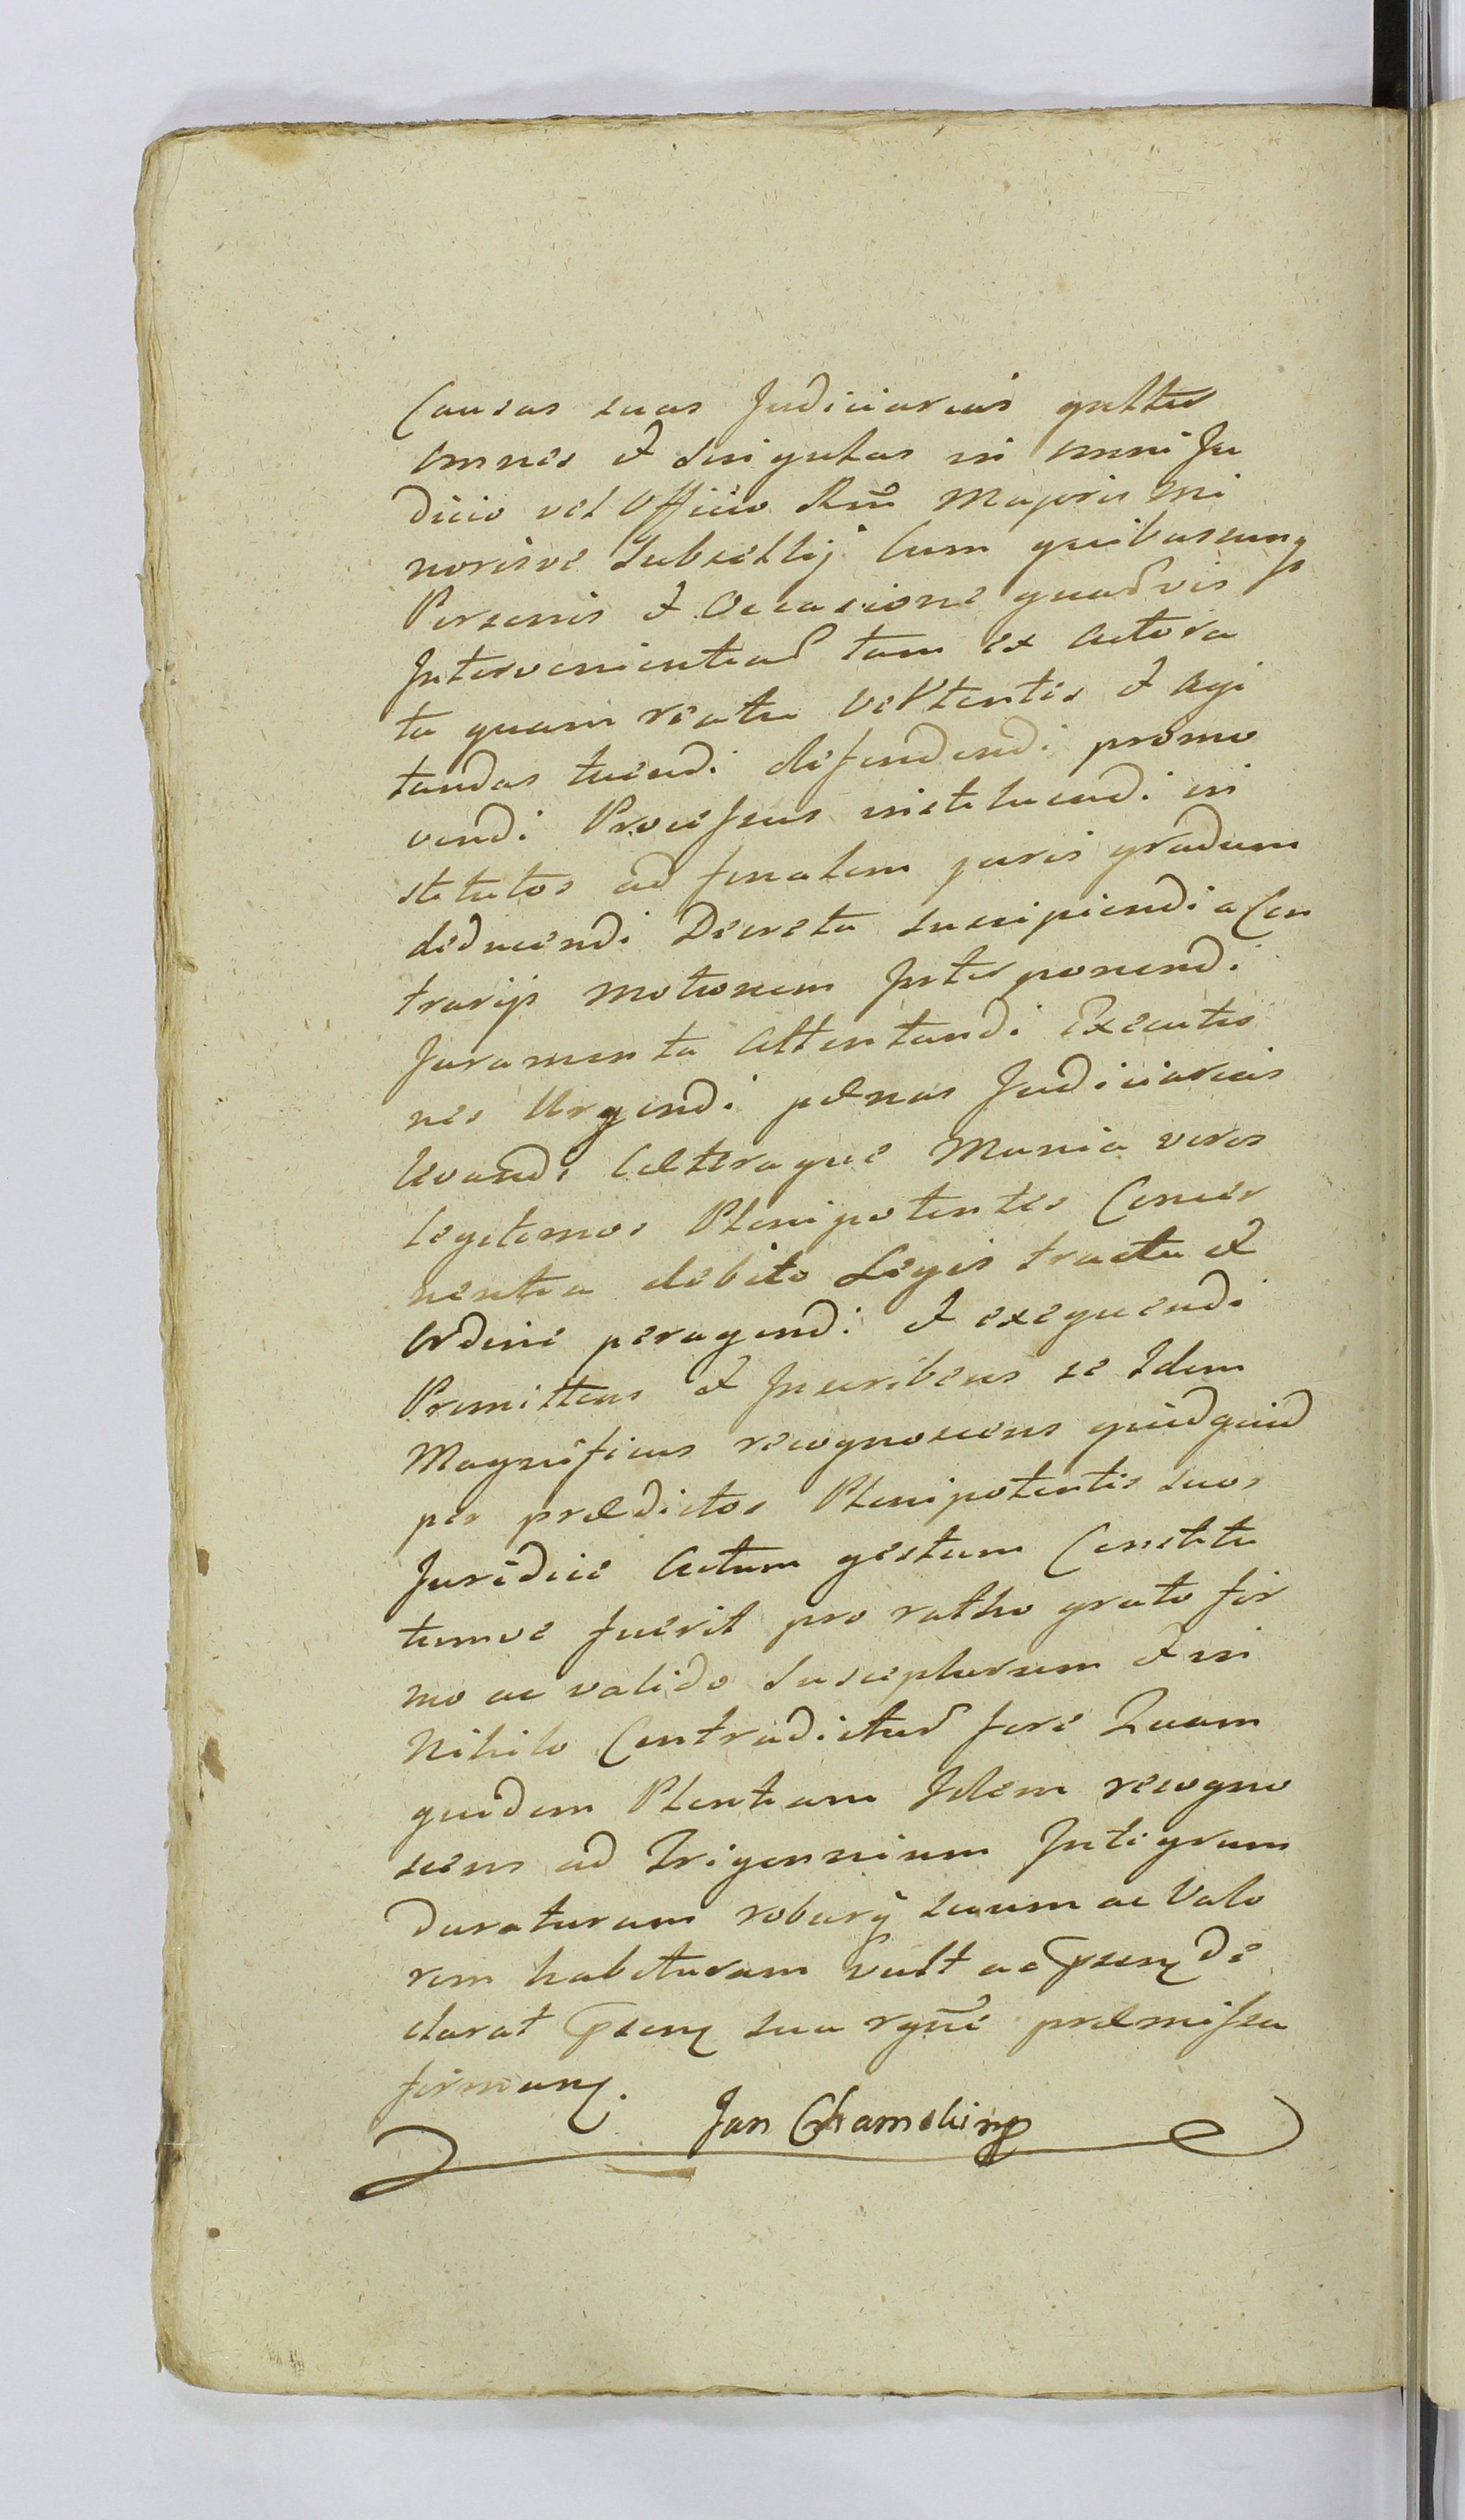 Causas suas Judiciarias gnltter
omnes et singulas in omni Ju
dicio vel Officio Rni Majoris Mi
norisve Subsellij Cum quibuscunq
Personis et Occasione quarvis
Intervenientiar tam ex Actora
tu quam reatu Vertentes et Agi
tandas tuendi defendendi promo
vendi Processus instituendi in
stitutos ad finalem juris gradum
deducendi Decreta suscipiendi a Con
trarijs Motionem Interponendi
Juramenta Attentandi Executio
nes Urgendi pænas Judiciarias
levandi Cæteraque Munia veros
legitimos Plenipotentes Concer
nentia debito Legis tractu et
Ordine peragendi et exequendi
Promittens et Inscribens se Idem
Magnificus recognoscens quidquid
per prædictos Plenipotentes suos
Juridice Actum gestum Constitu
tumve fuerit pro ratho grato fir
mo ac valido Suscepturum et in
Nihilo Contradictur fore Quam
quidem Plentiam Idem recogno
scens ad Trigennium Integrum
duraturam roburq suum ac Valo
rem habituram vult ac psenq de
clarat psenq sua rgne præmissa
firmanq.
Jan Chamskimp